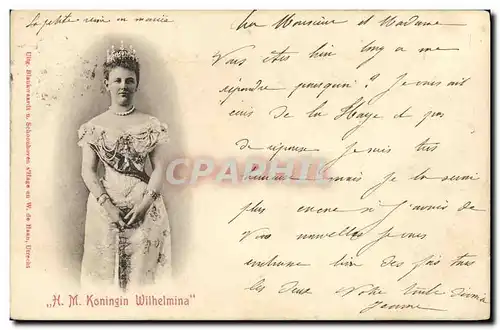 La petite reine en mariée
Cher Monsieur et Madame
Vous êtes bien long a me
répondre pourquoi? Je vous ai
de la Haye et pas
de réponse Je suis très
mais je le serai
plus encore si j'avais de
Vos nouvelles je vous
embrasse bien des fois tous
les deux Votre
Jeanne
Uitg. Blankwaardt u. Schoonhoven, s'Hage en W. de Haan, Utrecht
CPARAMA
„H. M. Koningin Wilhelmina"